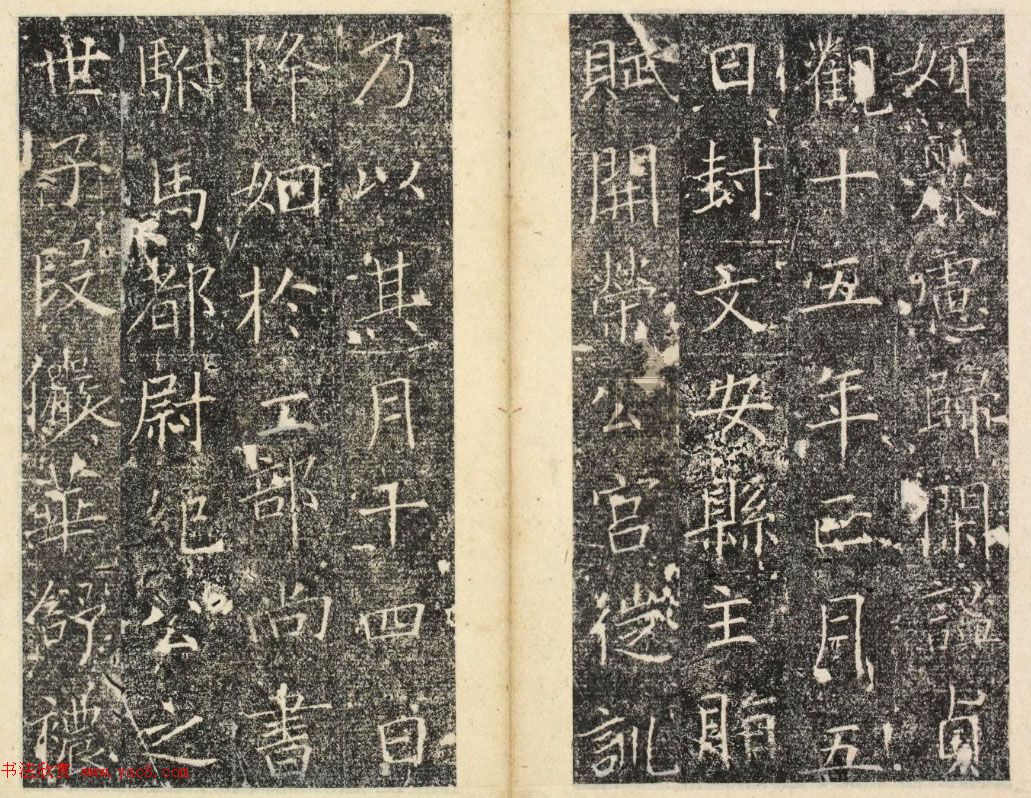 妍憲歸閑謐貞
觀十五年正月五
日封文安縣主賄
賦開榮公宮從訓
乃以其月十四日
降姻於工部尚書
駙馬都尉紀公之
世子段儼華舒禮
书法欣赏 www.yac8.com